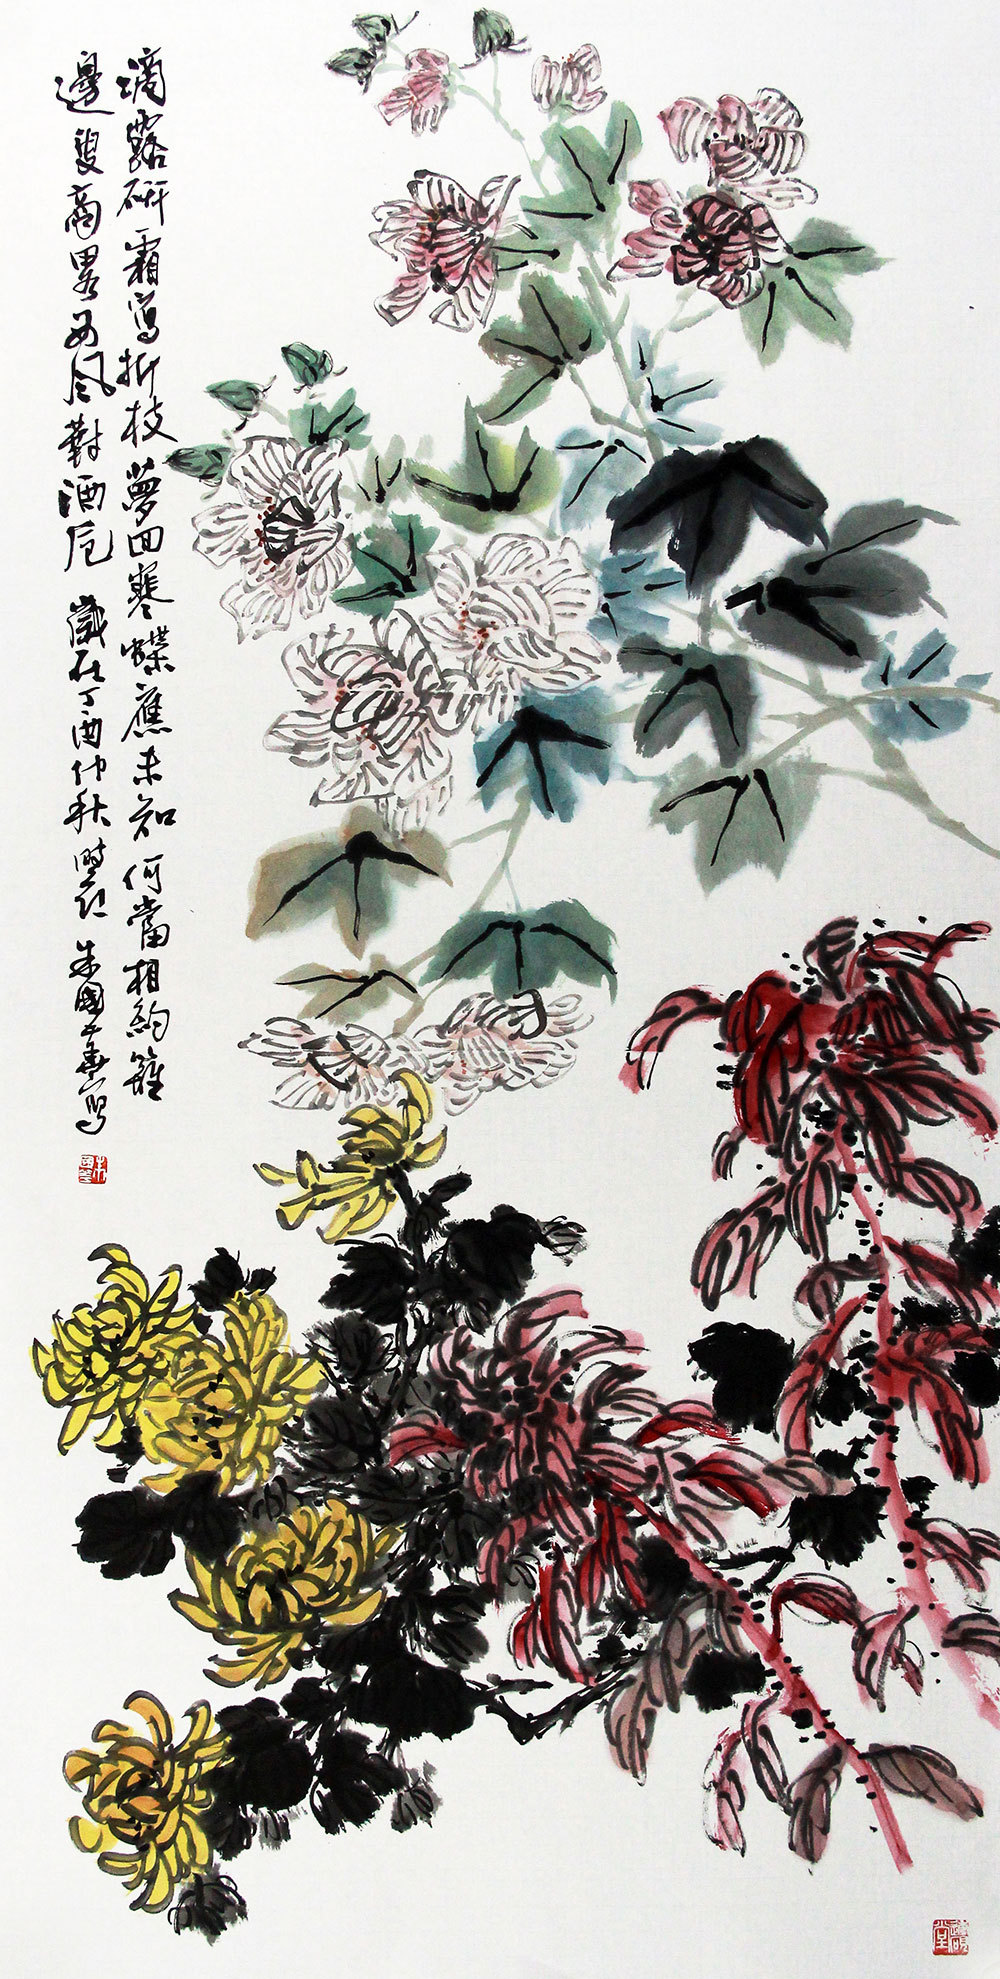 滴露研霜寫折枝夢回寒蝶應未知何當相約籬
邊叟商略西風對酒卮 歲在丁酉仲秋時節 朱國華寫
朱國華
堂